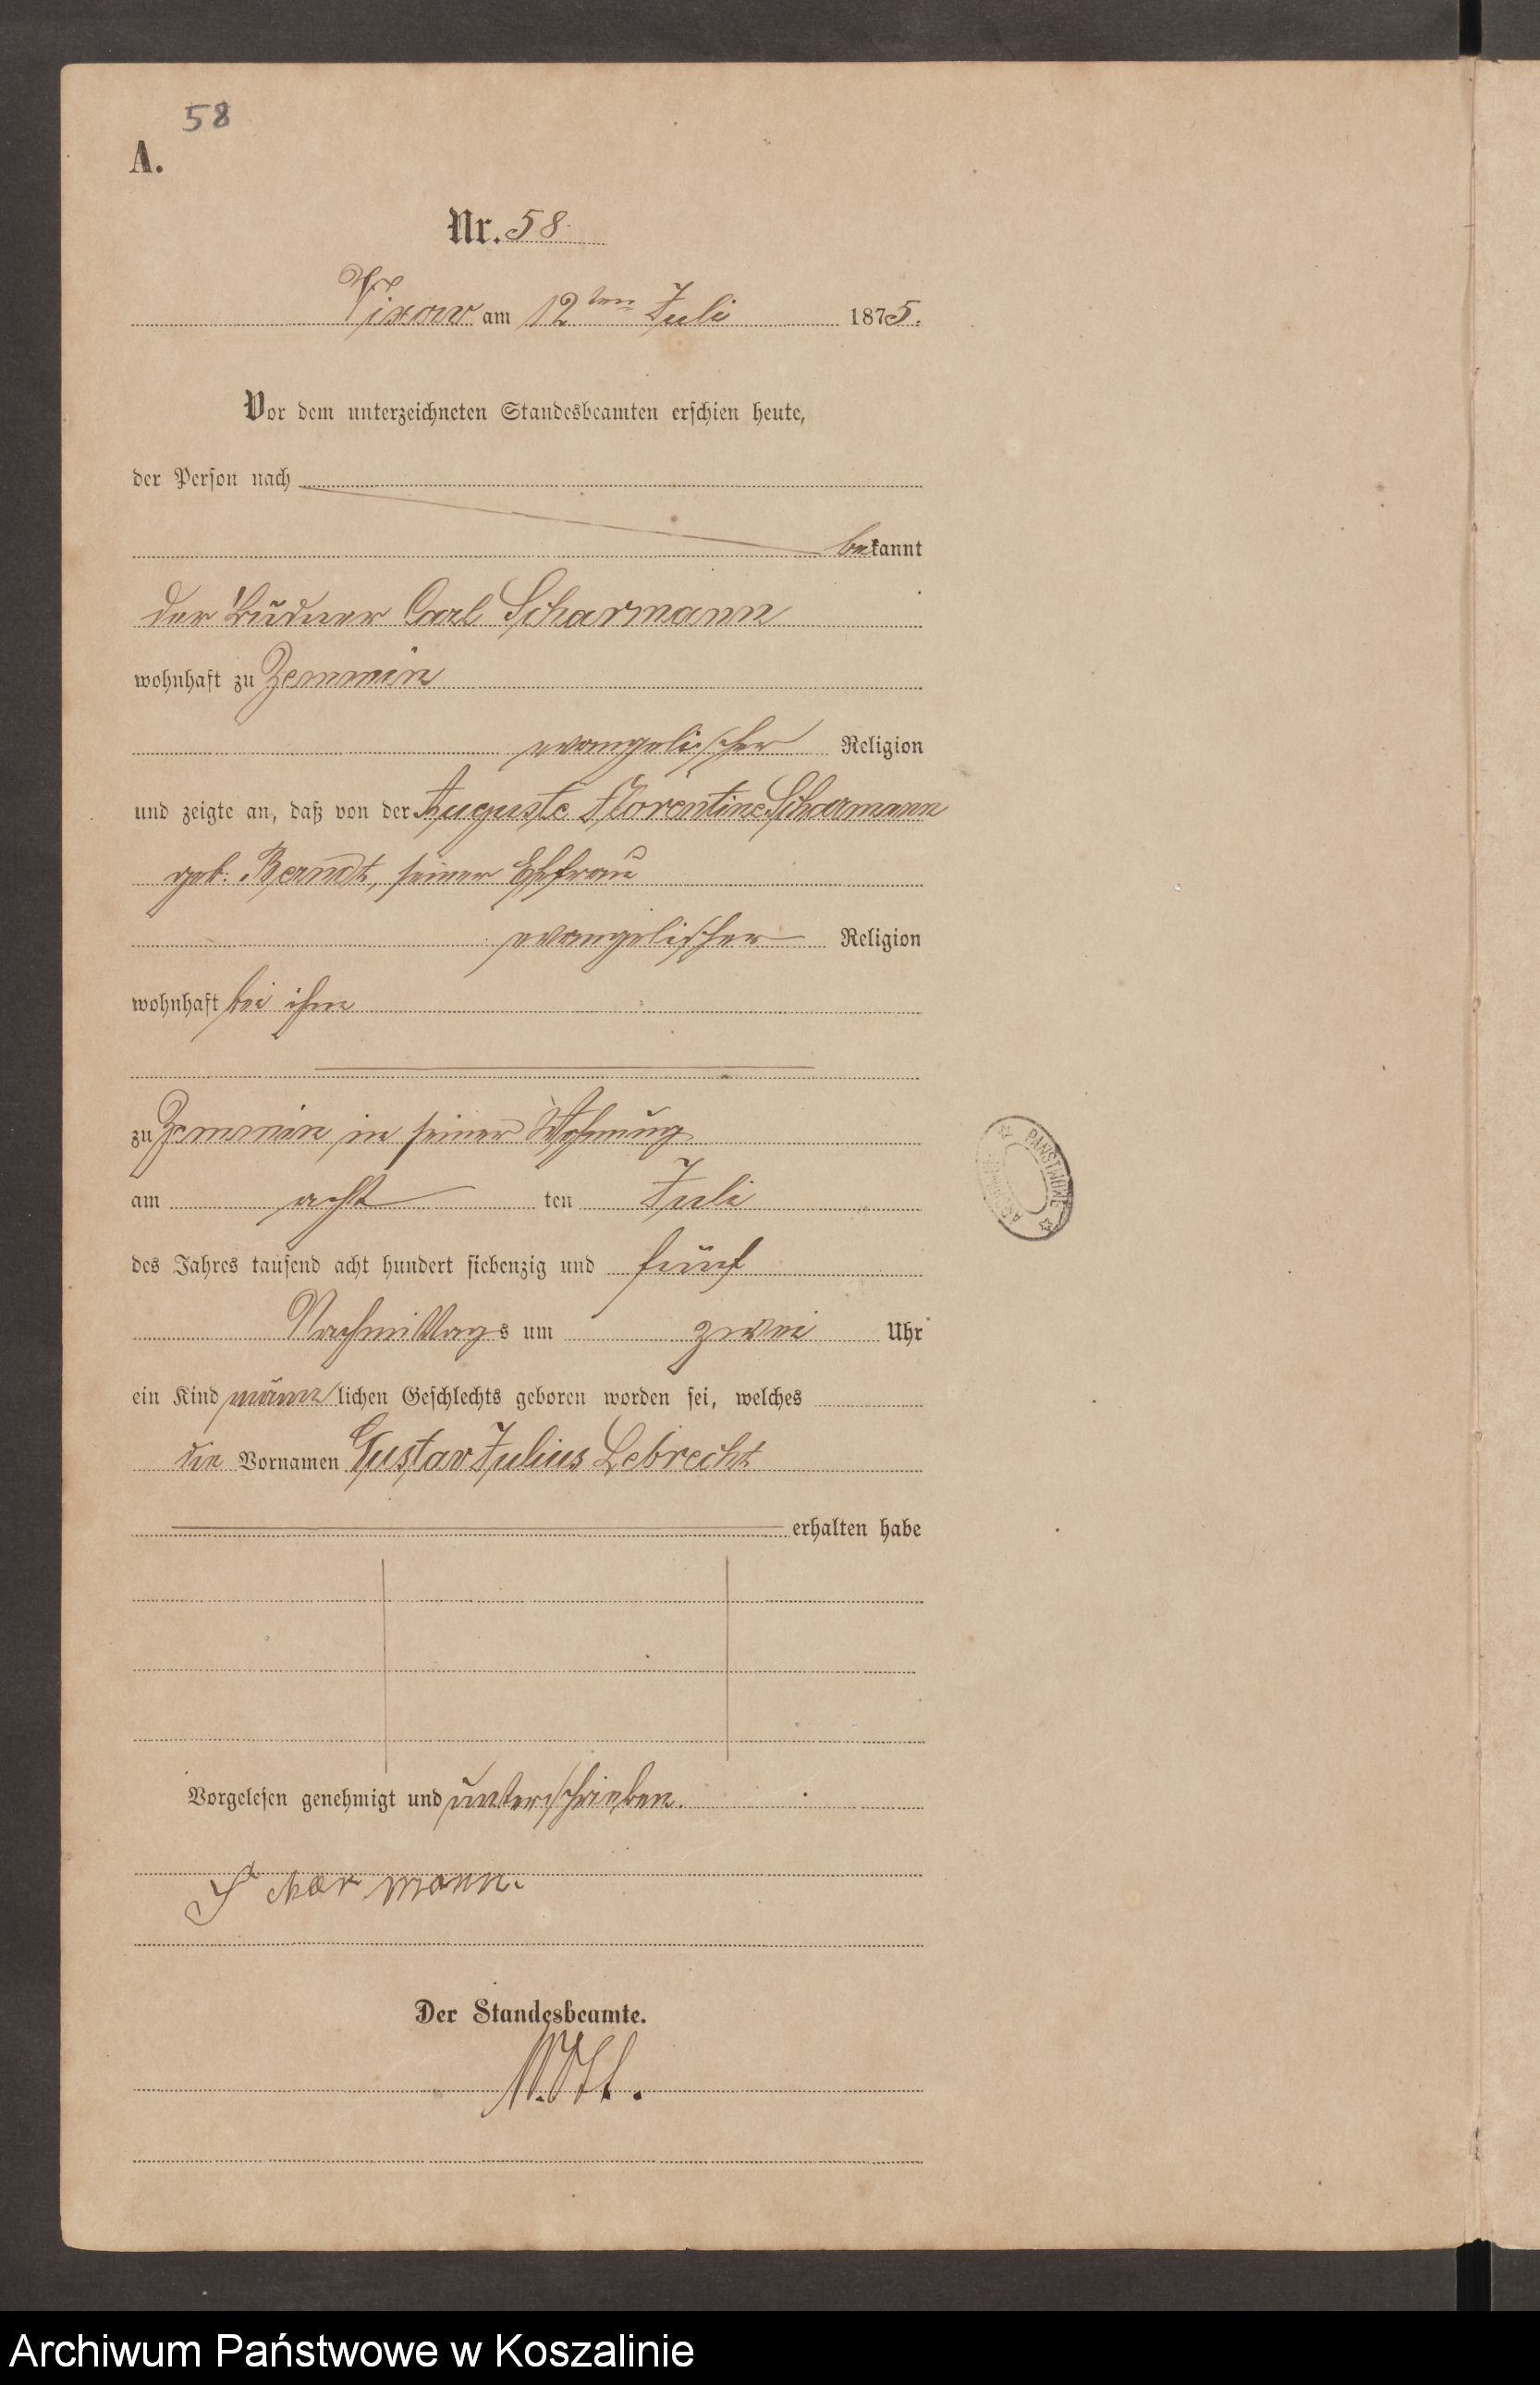 58
A.
Nr. 58.
Vixow am 12ten Juli 1875.
Vor dem unterzeichneten Standesbeamten erschien heute,
der Person nach
bekannt
der Büdner Carl Scharmann
wohnhaft zu Zemmin
evangelischer Religion
und zeigte an, daß von der Auguste Florentine Scharmann
geb. Berndt, seiner Ehefrau
evangelischer Religion
wohnhaft bei ihm
zu Zemmin in seiner Wohnung
am acht ten Juli
des Jahres tausend acht hundert siebenzig und fünf
Nachmittags um zwei Uhr
ein Kind männlichen Geschlechts geboren worden sei, welches
die Vornamen Gustav Julius Lebrecht
erhalten habe
Vorgelesen genehmigt und unterschrieben.
Scharmann.
Der Standesbeamte.
PAŃSTWOWE
Archiwum Państwowe w Koszalinie